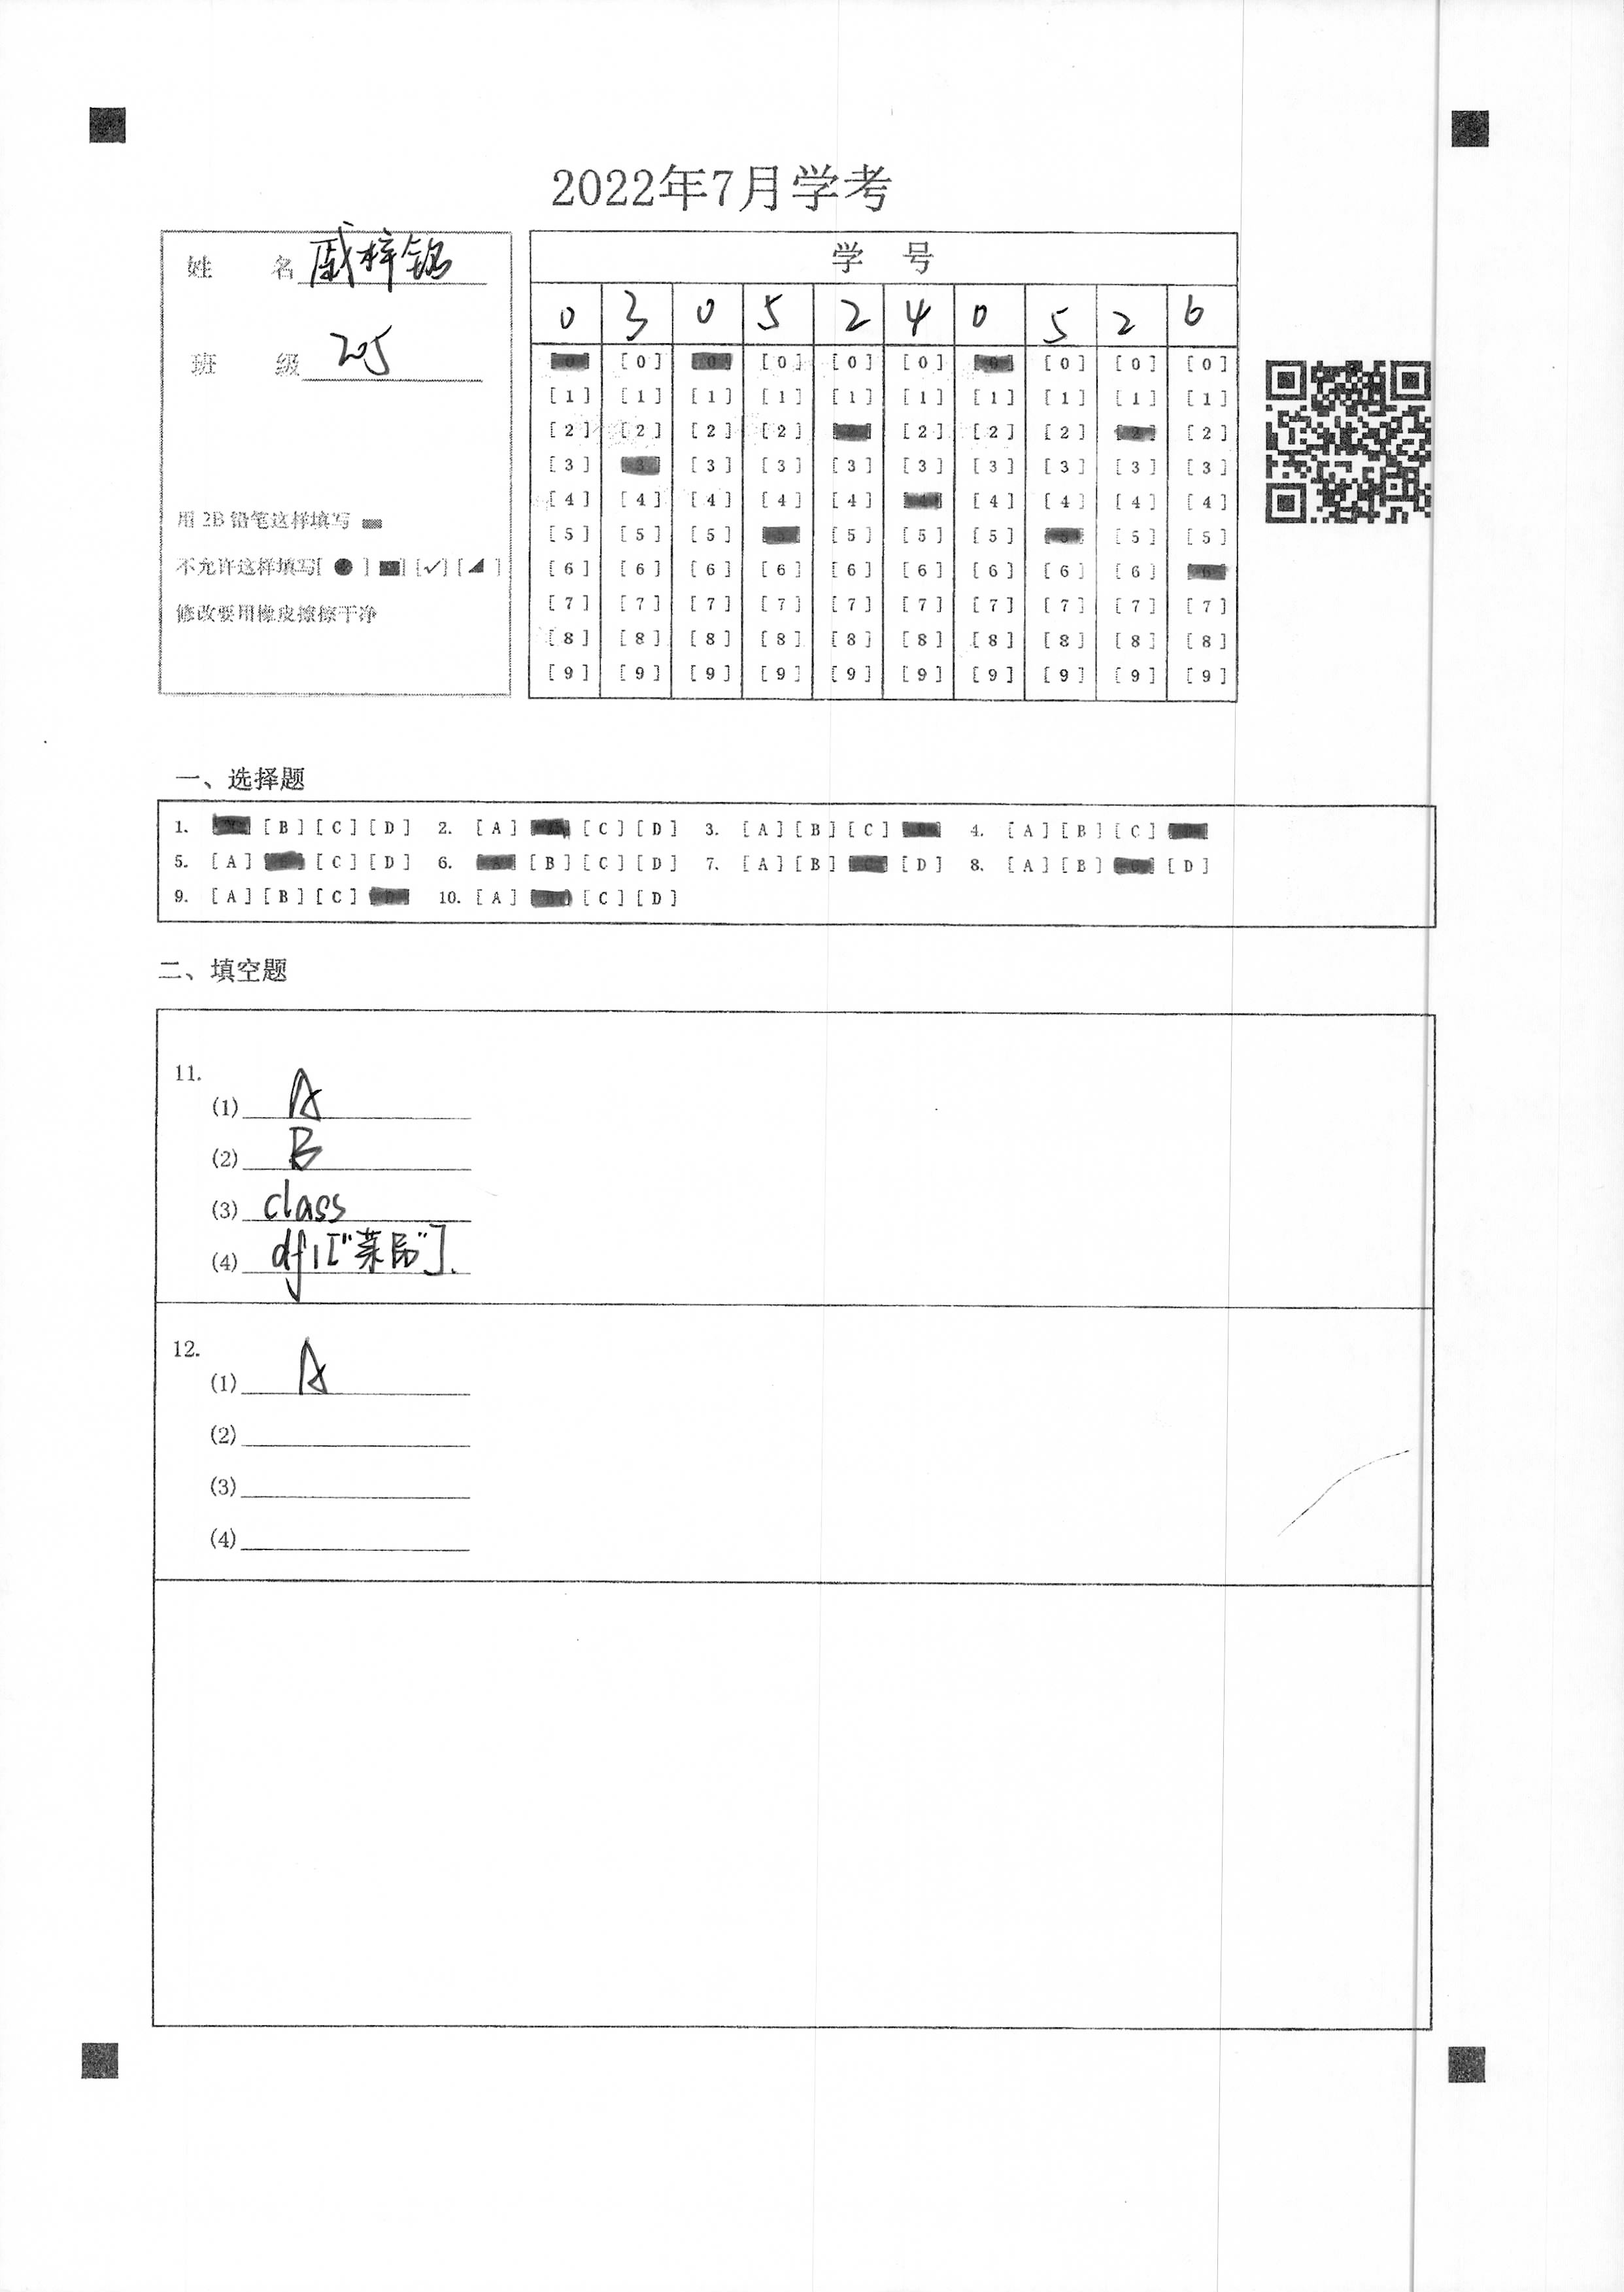 2022年7月学考
姓 名 戚梓铭
班 级 205
用 2B 铅笔这样填写
不允许这样填写[ ● ] ■] [✓] [ ◢ ]
修改要用橡皮擦擦干净
学 号
0 3 0 5 2 4 0 5 2 6
[0] [0] [0] [0] [0] [0] [0] [0] [0] [0]
[1] [1] [1] [1] [1] [1] [1] [1] [1] [1]
[2] [2] [2] [2] [2] [2] [2] [2] [2]
[3] [3] [3] [3] [3] [3] [3] [3] [3] [3]
[4] [4] [4] [4] [4] [4] [4] [4] [4] [4]
[5] [5] [5] [5] [5] [5] [5] [5] [5] [5]
[6] [6] [6] [6] [6] [6] [6] [6] [6] [6]
[7] [7] [7] [7] [7] [7] [7] [7] [7] [7]
[8] [8] [8] [8] [8] [8] [8] [8] [8] [8]
[9] [9] [9] [9] [9] [9] [9] [9] [9] [9]
一、选择题
1. [B] [C] [D] 2. [A] [C] [D] 3. [A] [B] [C] 4. [A] [B] [C]
5. [A] [C] [D] 6. [B] [C] [D] 7. [A] [B] [D] 8. [A] [B] [D]
9. [A] [B] [C] 10. [A] [C] [D]
二、填空题
11.
(1) A
(2) B
(3) class
(4) df1["菜品"].
12.
(1) A
(2)
(3)
(4)